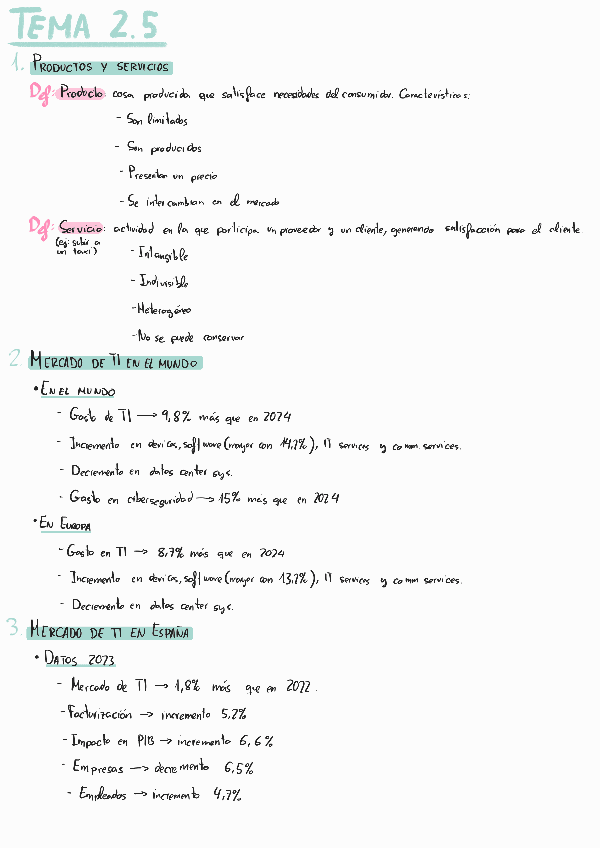 TEMA 2.5
1. PRODUCTOS Y SERVICIOS
Def: Producto: cosa producida que satisface necesidades del consumidor. Características:
- Son limitados
- Son producidos
- Presentan un precio
- Se intercambian en el mercado
Def: Servicio: actividad en la que participa un proveedor y un cliente, generando satisfacción para el cliente
(ej: subir a
un taxi)
- Intangible
- Indivisible
- Heterogéneo
- No se puede conservar
2. MERCADO DE TI EN EL MUNDO
• EN EL MUNDO
- Gasto de TI → 9,8% más que en 2024
- Incremento en devices, software (mayor con 14,2%), IT services y comm. services.
- Decremento en datos center sys.
- Gasto en ciberseguridad → 15% más que en 2024
• EN EUROPA
- Gasto en TI → 8,7% más que en 2024
- Incremento en devices, software (mayor con 13,2%), IT services y comm services.
- Decremento en datos center sys.
3. MERCADO DE TI EN ESPAÑA
• DATOS 2023
- Mercado de TI → 1,8% más que en 2022.
- Facturización → incremento 5,2%
- Impacto en PIB → incremento 6,6%
- Empresas → decremento 6,5%
- Empleados → incremento 4,7%